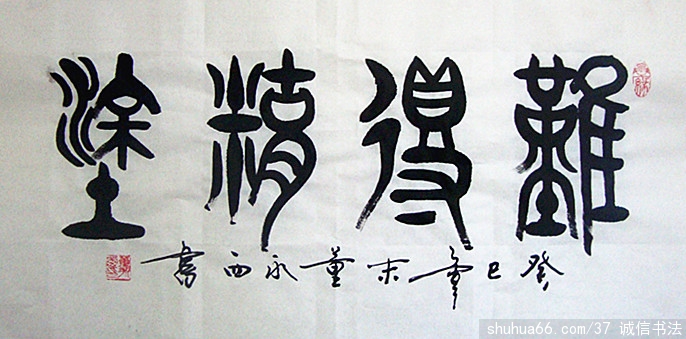 難得糊塗
癸巳年末董永西書
shuhua66.com/37 诚信书法